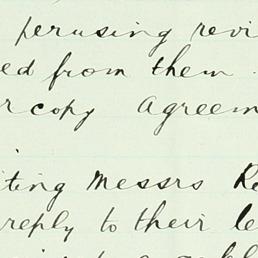 perusing revi
ed from them
r copy Agreem
iting Messrs Re
reply to their le